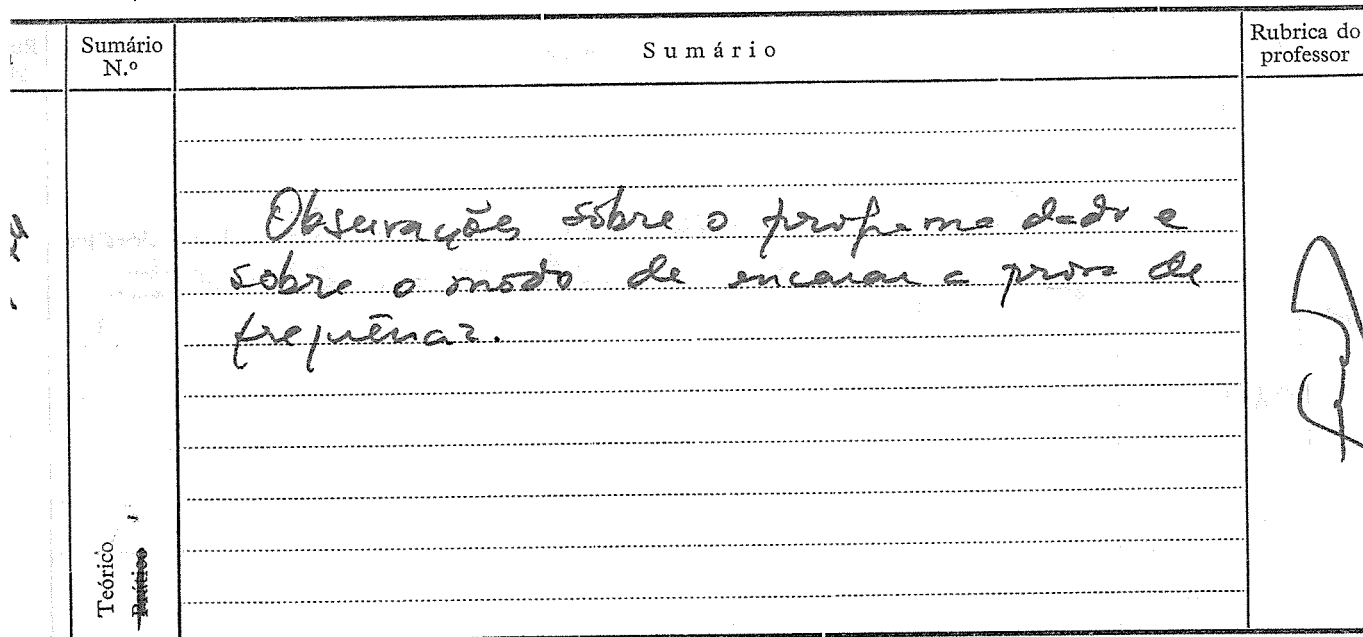 Sumário
N.º
Sumário
Rubrica do
professor
Observações sôbre o programa dado e
sobre o modo de encarar a prova de
frequência.
Teórico
Prático